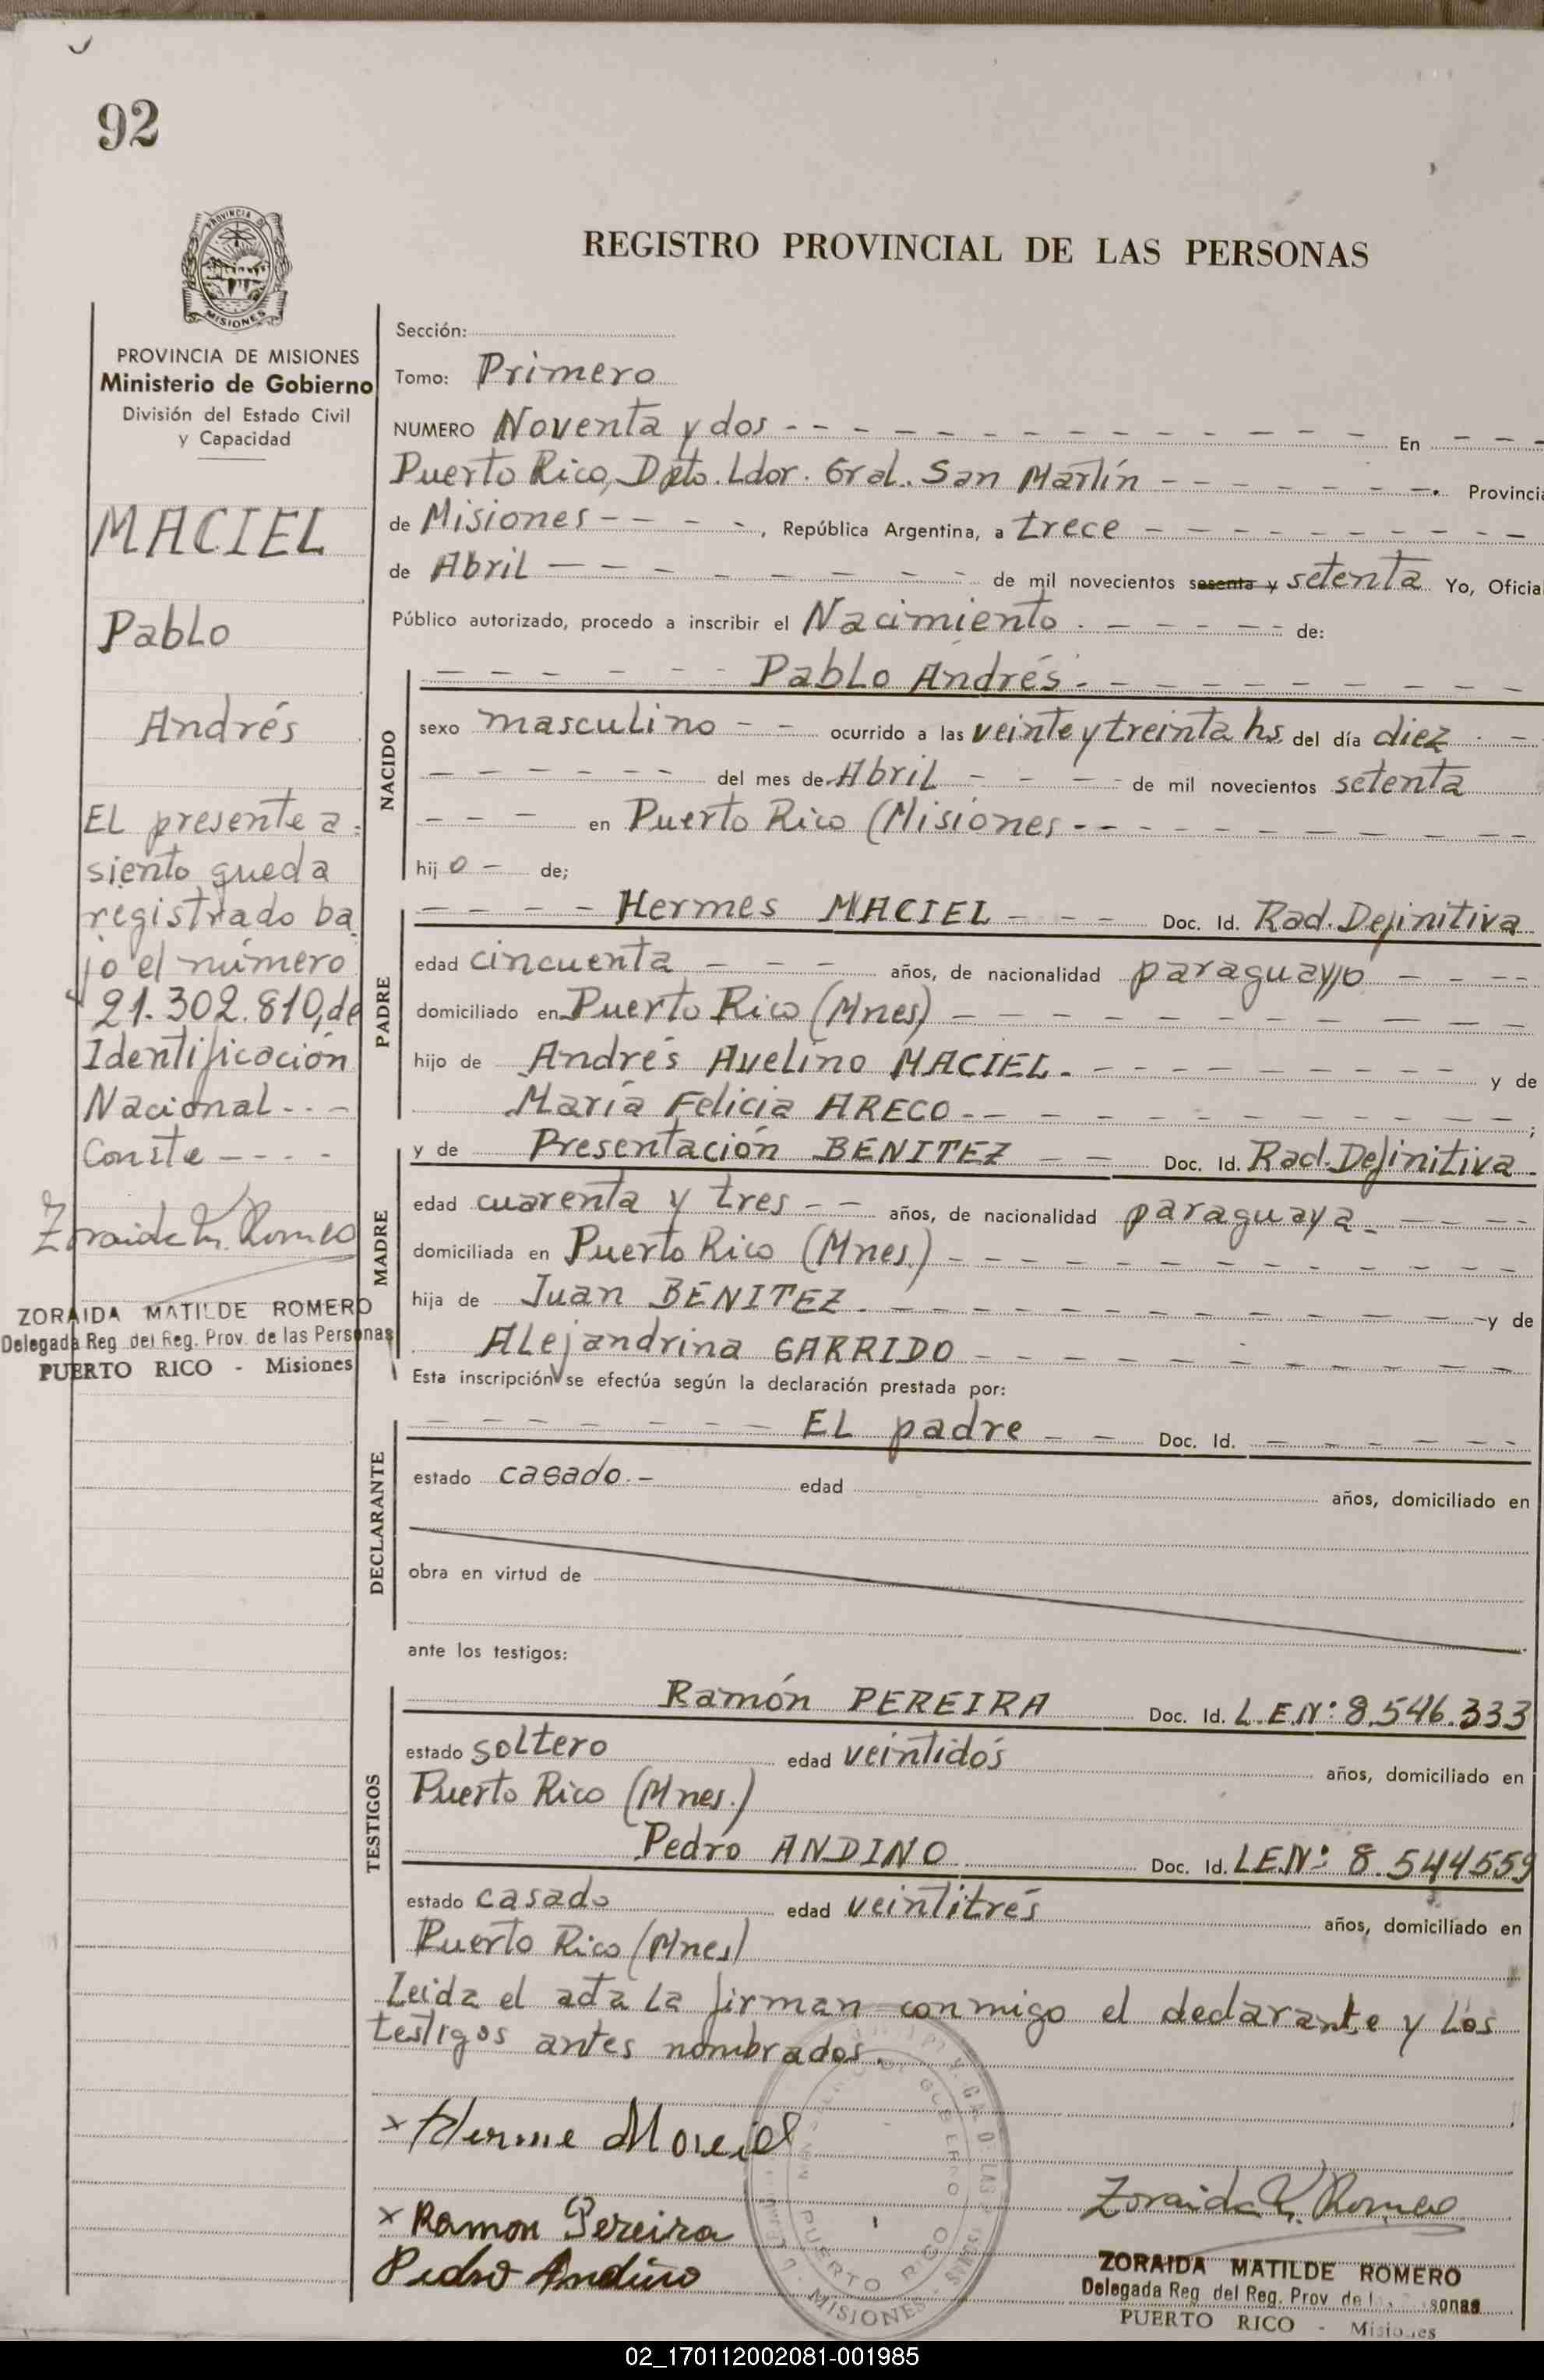 92
PROVINCIA DE
MISIONES
REGISTRO PROVINCIAL DE LAS PERSONAS
PROVINCIA DE MISIONES
Ministerio de Gobierno
División del Estado Civil
y Capacidad
MACIEL
Pablo
Andrés
EL presente a-
siento queda
registrado ba
jo el número
21.302.810, de
Identificación
Nacional - - -
Conste - - - -
Zoraida M. Romero
ZORAIDA MATILDE ROMERO
Delegada Reg. del Reg. Prov. de las Personas
PUERTO RICO - Misiones
Sección:
Tomo: Primero
NUMERO Noventa y dos - - - En - - -
Puerto Rico, Dpto. Ldor. Gral. San Martín - - - . Provincia
de Misiones - - - -, República Argentina, a trece - - -
de Abril - - - de mil novecientos sesenta y setenta Yo, Oficial
Público autorizado, procedo a inscribir el Nacimiento . - - - de:
NACIDO
- - - Pablo Andrés. - - -
sexo masculino - - ocurrido a las veinte y treinta hs. del día diez . - -
- - - del mes de Abril - - - de mil novecientos setenta
- - - en Puerto Rico (Misiones - - -
hij o - de;
PADRE
- - - - Hermes MACIEL - - - Doc. Id. Rad. Definitiva
edad cincuenta - - - años, de nacionalidad paraguayo - - -
domiciliado en Puerto Rico (Mnes) - - -
hijo de Andrés Avelino MACIEL. - - - y de
María Felicia ARECO - - - ;
MADRE
y de Presentación BENITEZ - - Doc. Id. Rad. Definitiva.
edad cuarenta y tres - - años, de nacionalidad paraguaya - - -
domiciliada en Puerto Rico (Mnes.) - - -
hija de Juan BENITEZ. - - - y de
ALejandrina GARRIDO - - -
Esta inscripción se efectúa según la declaración prestada por:
DECLARANTE
- - - EL padre - - Doc. Id. - - -
estado casado. - edad años, domiciliado en
obra en virtud de
ante los testigos:
TESTIGOS
Ramón PEREIRA Doc. Id. L.E.Nº: 8.546.333
estado soltero edad veintidós años, domiciliado en
Puerto Rico (Mnes.)
Pedro ANDINO Doc. Id. L.E.Nº: 8.544559
estado casado edad veintitrés años, domiciliado en
Puerto Rico (Mnes)
Leida el acta La firman conmigo el declarante y Los
testigos antes nombrados.
x Herme Maciel
x Ramon Pereira
Pedro Andino
Zoraida M. Romero
ZORAIDA MATILDE ROMERO
Delegada Reg del Reg. Prov de sonas
PUERTO RICO - Misiones
PUERTO RICO
MISIONES
02_170112002081-001985